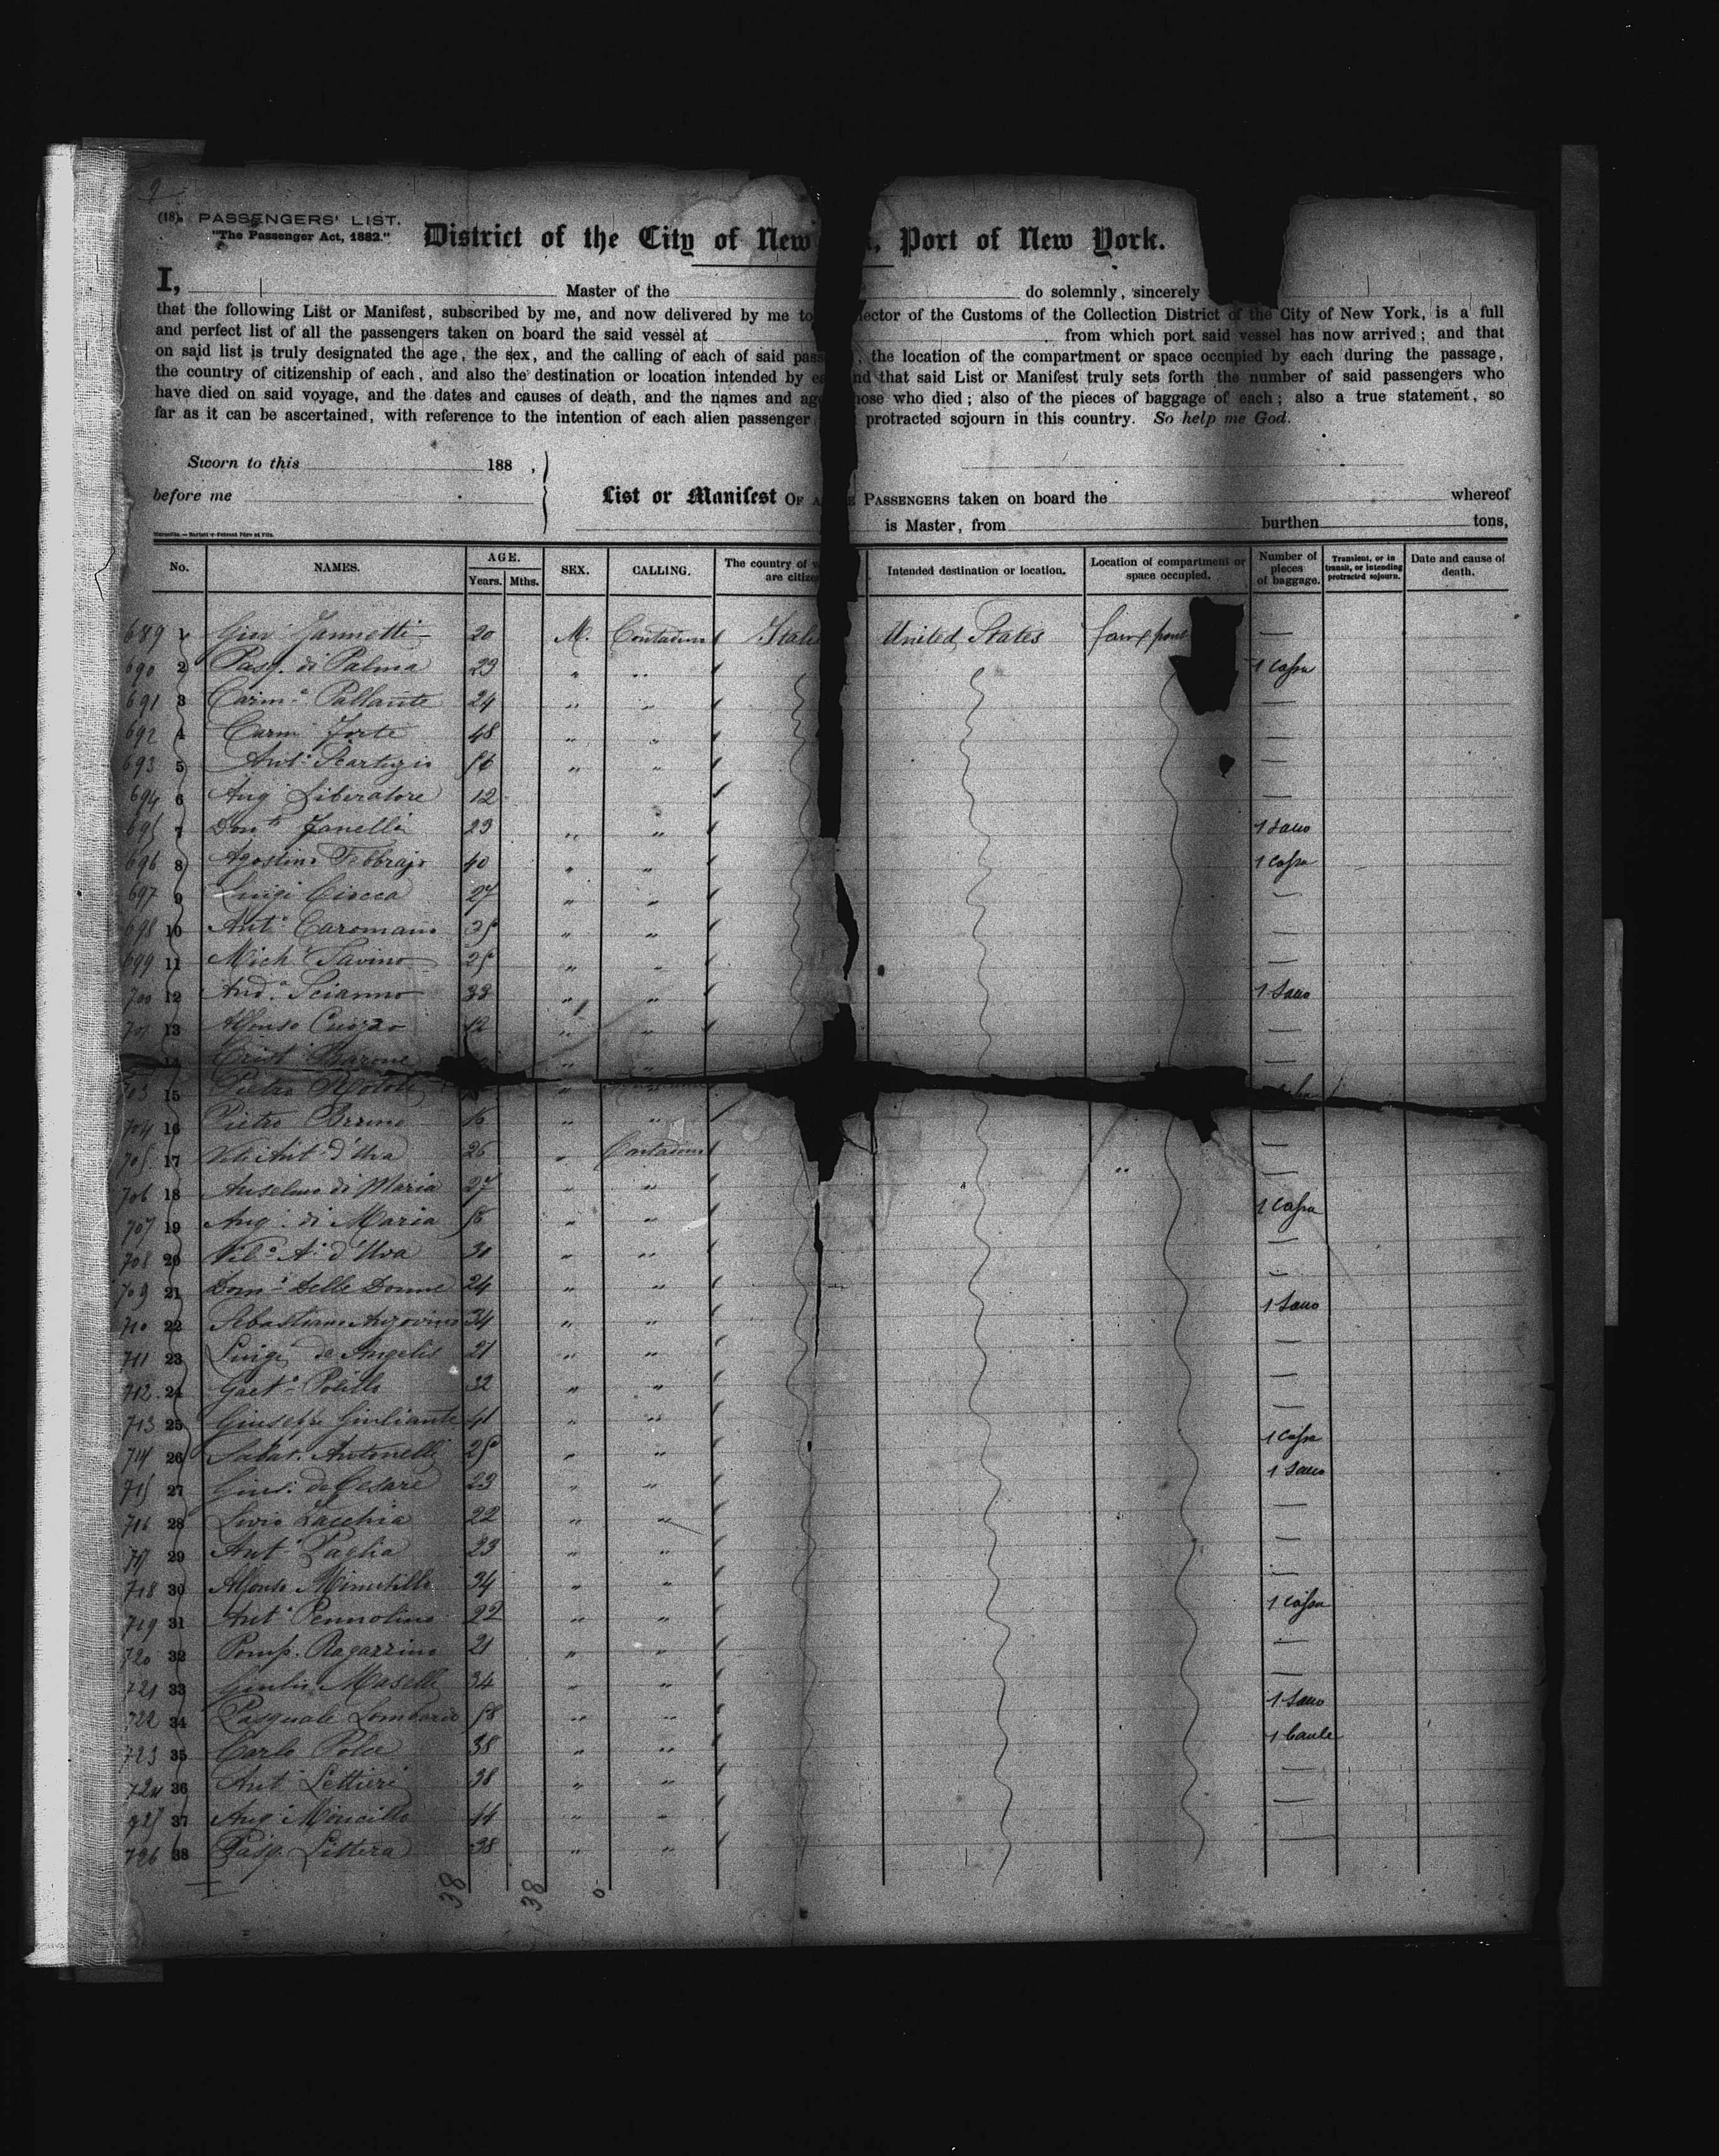 9
(18) PASSENGERS' LIST.
"The Passenger Act, 1882."
District of the City of New Port of New York.
I, Master of the do solemnly, sincerely
that the following List or Manifest, subscribed by me, and now delivered by me to lector of the Customs of the Collection District of the City of New York, is a full
and perfect list of all the passengers taken on board the said vessel at from which port said vessel has now arrived; and that
on said list is truly designated the age, the sex, and the calling of each of said pass , the location of the compartment or space occupied by each during the passage,
the country of citizenship of each, and also the destination or location intended by ea nd that said List or Manifest truly sets forth the number of said passengers who
have died on said voyage, and the dates and causes of death, and the names and age hose who died; also of the pieces of baggage of each; also a true statement, so
far as it can be ascertained, with reference to the intention of each alien passenger protracted sojourn in this country. So help me God.
Sworn to this 188 ,
before me
List or Manifest OF A E PASSENGERS taken on board the whereof
is Master, from burthen tons,
No. NAMES. AGE. Years. Mths. SEX. CALLING. The country of w are citize Intended destination or location. Location of compartment or space occupied. Number of pieces of baggage. Transient, or in transit, or intending protracted sojourn. Date and cause of death.
689 1 Giov Jannotti 20 M. Contadino Itali United States —
690 2 Pasq. di Palma 29 " " 1 Cassa
691 3 Carm.e Pallante 24 " " —
692 4 Carm Forte 48 " " —
693 5 Ant.o 56 " " —
694 6 Ang Liberatore 12 —
695 7 Don.to Janelli 23 " " 1 Sacco
696 8 Agostino Febbrajo 40 " " 1 Cassa
697 9 Luigi Ciocca 27 " " —
698 10 Ant.o Caromano 35 " " —
699 11 Mich Savino 25 " " —
700 12 And.a Scianno 33 " " 1 Sacco
701 13 Alfonso Cuozzo 12 " " —
14 Crist Barone " " —
703 15 Pietro " "
704 16 Pietro Bruno 16 " "
705 17 Ant d'Uva 26 " Contadino —
706 18 Anselmo di Maria 27 " " —
707 19 Ang. di Maria 56 " " 1 Cassa
708 20 A. d'Uva 30 " " —
709 21 Dom.o Delle Donne 24 " " —
710 22 Sebastiano Anzovino 34 " " 1 Sacco
711 23 Luigi de Angelis 21 " " —
712 24 Gaet.o Polillo 32 " " —
713 25 Giuseppe Giuliante 41 " " —
714 26 Sabat. Antonelli 25 " " 1 Cassa
715 27 Gius. de Cesare 23 " " 1 Sacco
716 28 Livio Lacchia 22 " " —
717 29 Ant. Paglia 23 " " —
718 30 Alfonso Minutillo 34 " " —
719 31 Ant. Pennolino 22 " " 1 Cassa
720 32 Pomp. Ragazzino 21 " " —
721 33 Giulio Maselli 34 " " —
722 34 Pasquale Lombardo 58 " " 1 Sacco
723 35 Carlo Polce 38 " " 1 Baule
724 36 Ant Lettieri 38 " " —
725 37 Ang 44 " " —
726 38 Pasq. Littera 38 " " —
38 38 0